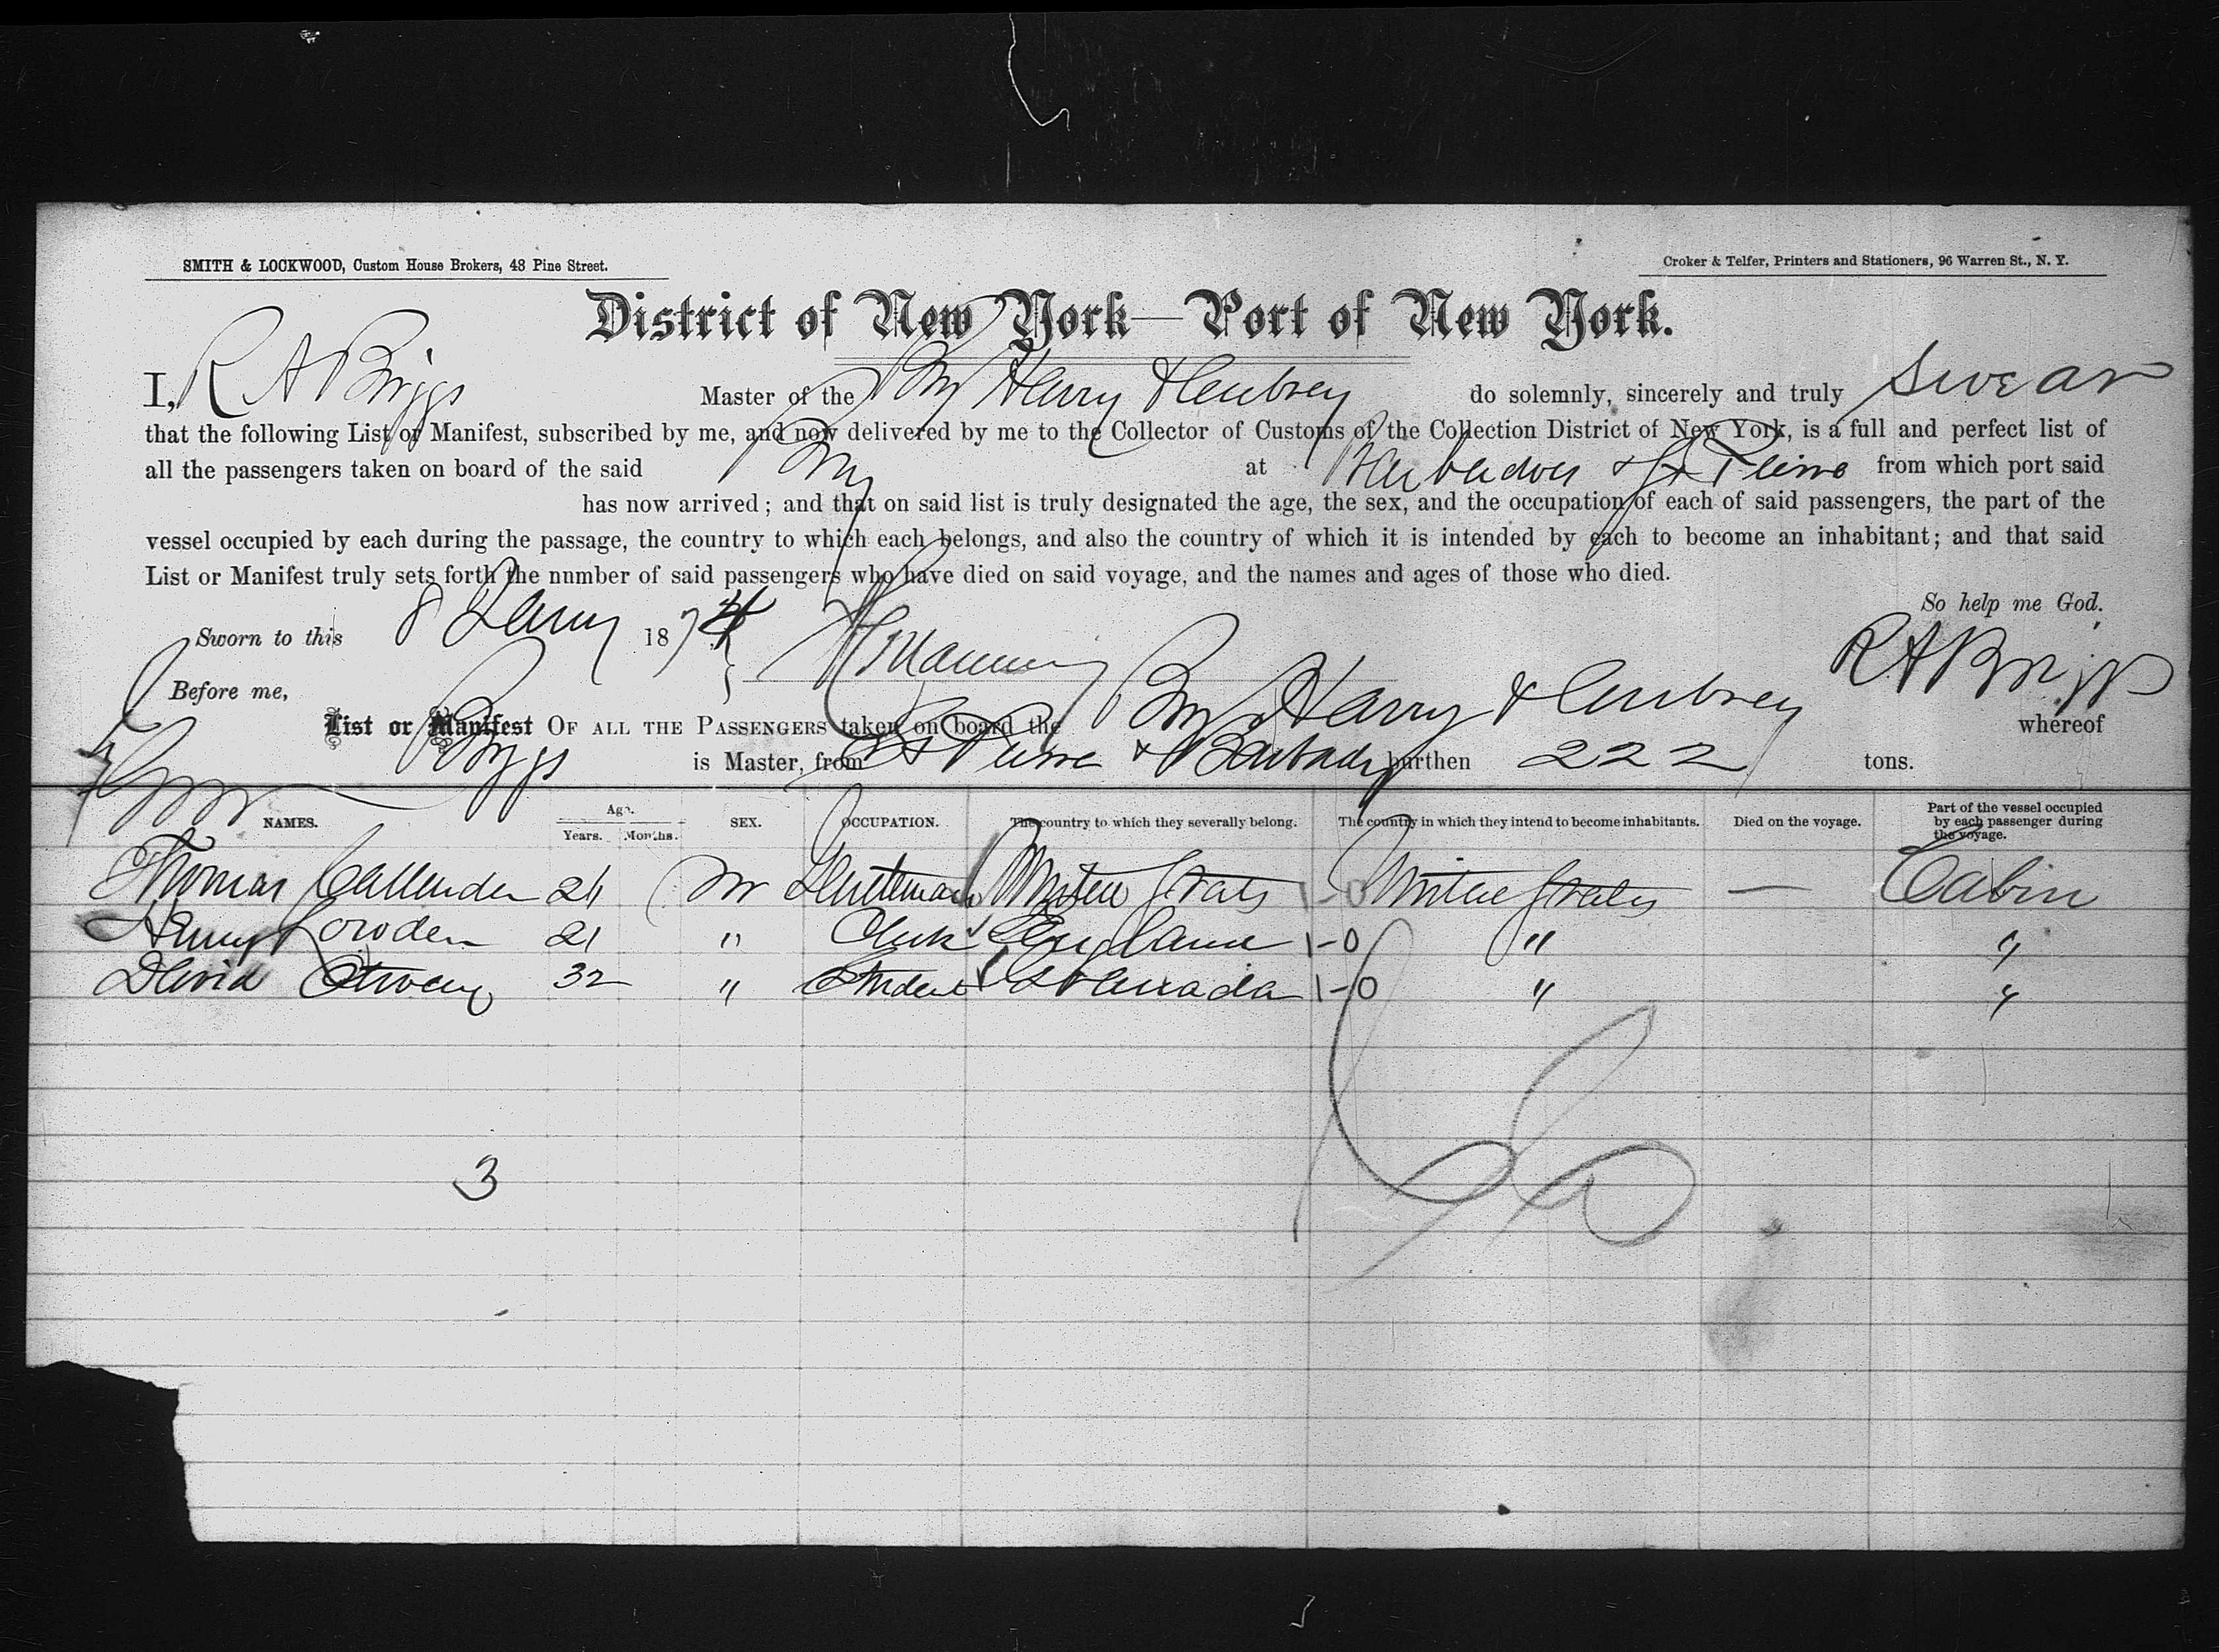 SMITH & LOCKWOOD, Custom House Brokers, 48 Pine Street.
Croker & Telfer, Printers and Stationers, 96 Warren St., N. Y.
District of New York—Port of New York.
I, R A Briggs Master of the Brig Harry & Aubrey do solemnly, sincerely and truly swear
that the following List or Manifest, subscribed by me, and now delivered by me to the Collector of Customs of the Collection District of New York, is a full and perfect list of
all the passengers taken on board of the said Brig at Barbadoes & St Pierre from which port said
has now arrived; and that on said list is truly designated the age, the sex, and the occupation of each of said passengers, the part of the
vessel occupied by each during the passage, the country to which each belongs, and also the country of which it is intended by each to become an inhabitant; and that said
List or Manifest truly sets forth the number of said passengers who have died on said voyage, and the names and ages of those who died.
So help me God.
Sworn to this 8 1874
R A Briggs
Before me,
List or Manifest OF ALL THE PASSENGERS taken on board the Brig Harry & Aubrey whereof
Briggs is Master, from St Pierre & Barbados burthen 222 tons.
NAMES. Age. Years. Months. SEX. OCCUPATION. The country to which they severally belong. The country in which they intend to become inhabitants. Died on the voyage. Part of the vessel occupied by each passenger during the voyage.
Thomas Callender M Gentleman United States United States — Cabin
Henry Lowden 21 " Clerk England 1-0 " "
David 32 " Student 1-0 " "
3